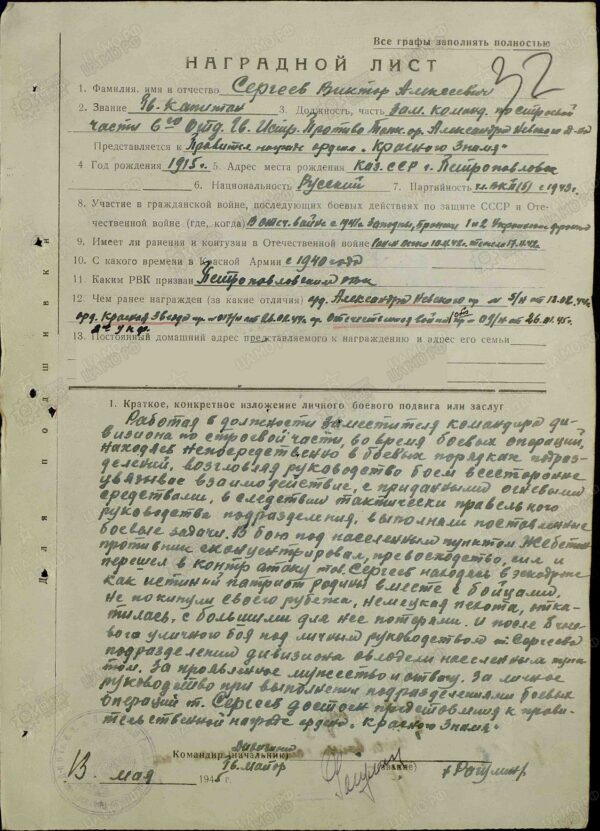 Все графы заполнять полностью
НАГРАДНОЙ ЛИСТ
32
1. Фамилия, имя и отчество Сергеев Виктор Алексеевич
2. Звание Гв. Капитан 3. Должность, часть Зам. команд. по строевой
части 6го Отд. Гв. Истр. Противо Танк. ор. Александра Невского д-на
Представляется к Правительств. награде ордену "Красное Знамя"
4 Год рождения 1915 г. 5. Адрес места рождения Каз. ССР г. Петропавловск
6. Национальность Русский 7. Партийность чл. ВКП(б) с 1943 г.
8. Участие в гражданской войне, последующих боевых действиях по защите СССР и Оте-
чественной войне (где, когда) В отеч. войне с 1941 г. Западн, Брянск 1 и 2 Украинском фронтах
9. Имеет ли ранения и контузии в Отечественной войне
10. С какого времени в Красной Армии с 1940 года
11. Каким РВК призван Петропавловским
12. Чем ранее награжден (за какие отличия) орд. Александра Невского пр-
орд. Красная Звезда пр. Отечественной Войны
13. Постоянный домашний адрес представляемого к награждению и адрес его семьи
Для подшивки
1. Краткое, конкретное изложение личного боевого подвига или заслуг
Работая в должности Заместителя командира ди-
визиона по строевой части, во время боевых операций,
находясь непосредственно в боевых порядках подраз-
делений, возглавляя руководство боем всесторонне
увязывое взаимодействие, с приданными огневыми
средствами, в следствии тактически правельного
руководства подразделения, выполняли поставленные
боевые задачи. В бою под населенным пунктом
противник сконцентрировал, превосходство, сил и
перешел в контр атаку тов. Сергеев находясь в
как истиний патриот родины вместе с бойцами,
не покинули своего рубежа, немецкая пехота, отка-
тилась, с большими для нее потерями. И после
вого уличного боя под личным руководством т. Сергеева
подразделении дивизиона овладели населенным пунк-
том. За проявленное мужество и отвагу. За личное
руководство при выполнении подразделениями боевых
операций т. Сергеев достоен предстовления к прави-
тельственной награде ордена "Красное Знамя"
Командир (начальник) дивизиона
Гв. Майор (звание)
13 мая 1945 г.